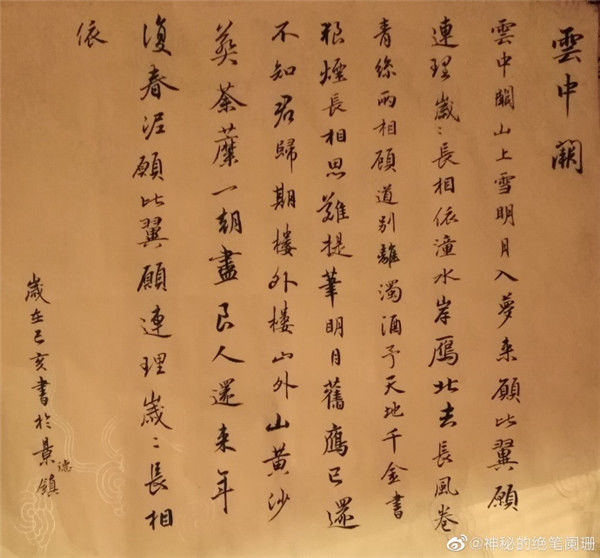 雲中闕
雲中闕山上雪明月入夢来願比翼願
連理歲〻長相依潼水岸鴈北去長風卷
青絲兩相顧道别離濁酒予天地千金書
狼煙長相思難提筆明月舊鷹已還
不知君歸期樓外樓山外山黄沙
葬荼蘼一朝盡良人還来年
復春泥願比翼願連理歲〻長相
依
歲在己亥書於景德鎮
@神秘的绝笔阑珊